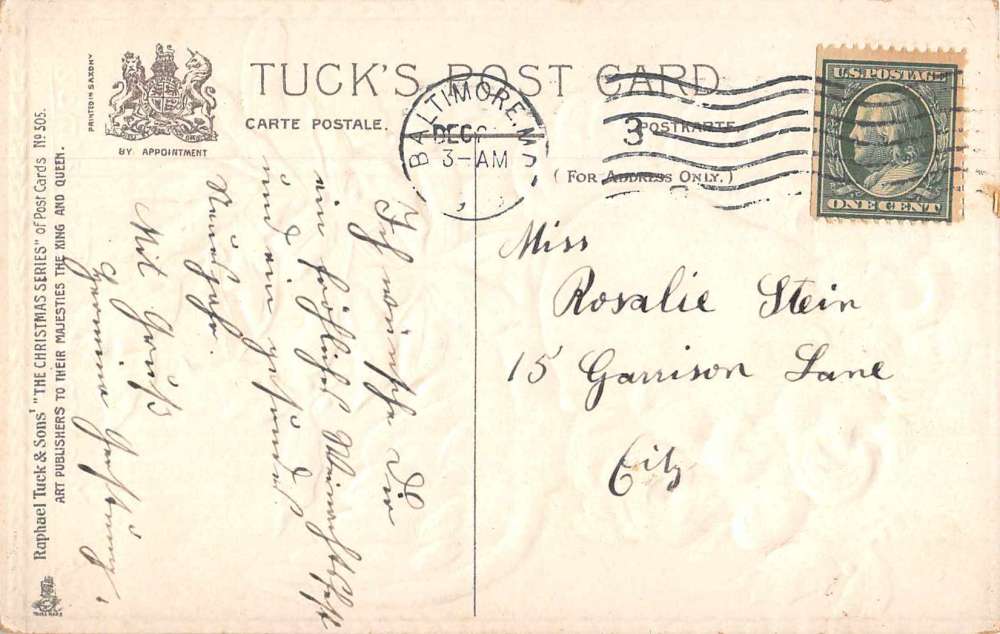 TUCK'S POST CARD
CARTE POSTALE.
POSTKARTE.
(FOR ADDRESS ONLY.)
BY APPOINTMENT
PRINTED IN SAXONY
Raphael Tuck & Sons' "THE CHRISTMAS SERIES" of Post Cards No 305.
ART PUBLISHERS TO THEIR MAJESTIES THE KING AND QUEEN.
BALTIMORE, MD
DEC
3-AM
3
U.S. POSTAGE
ONE CENT
Ich wünsche Dir
ein fröhliches Weinachtsfest
und ein gesundes
Neujahr.
Mit Gruß
Hermina
Miss
Rosalie Stein
15 Garrison Lane
City